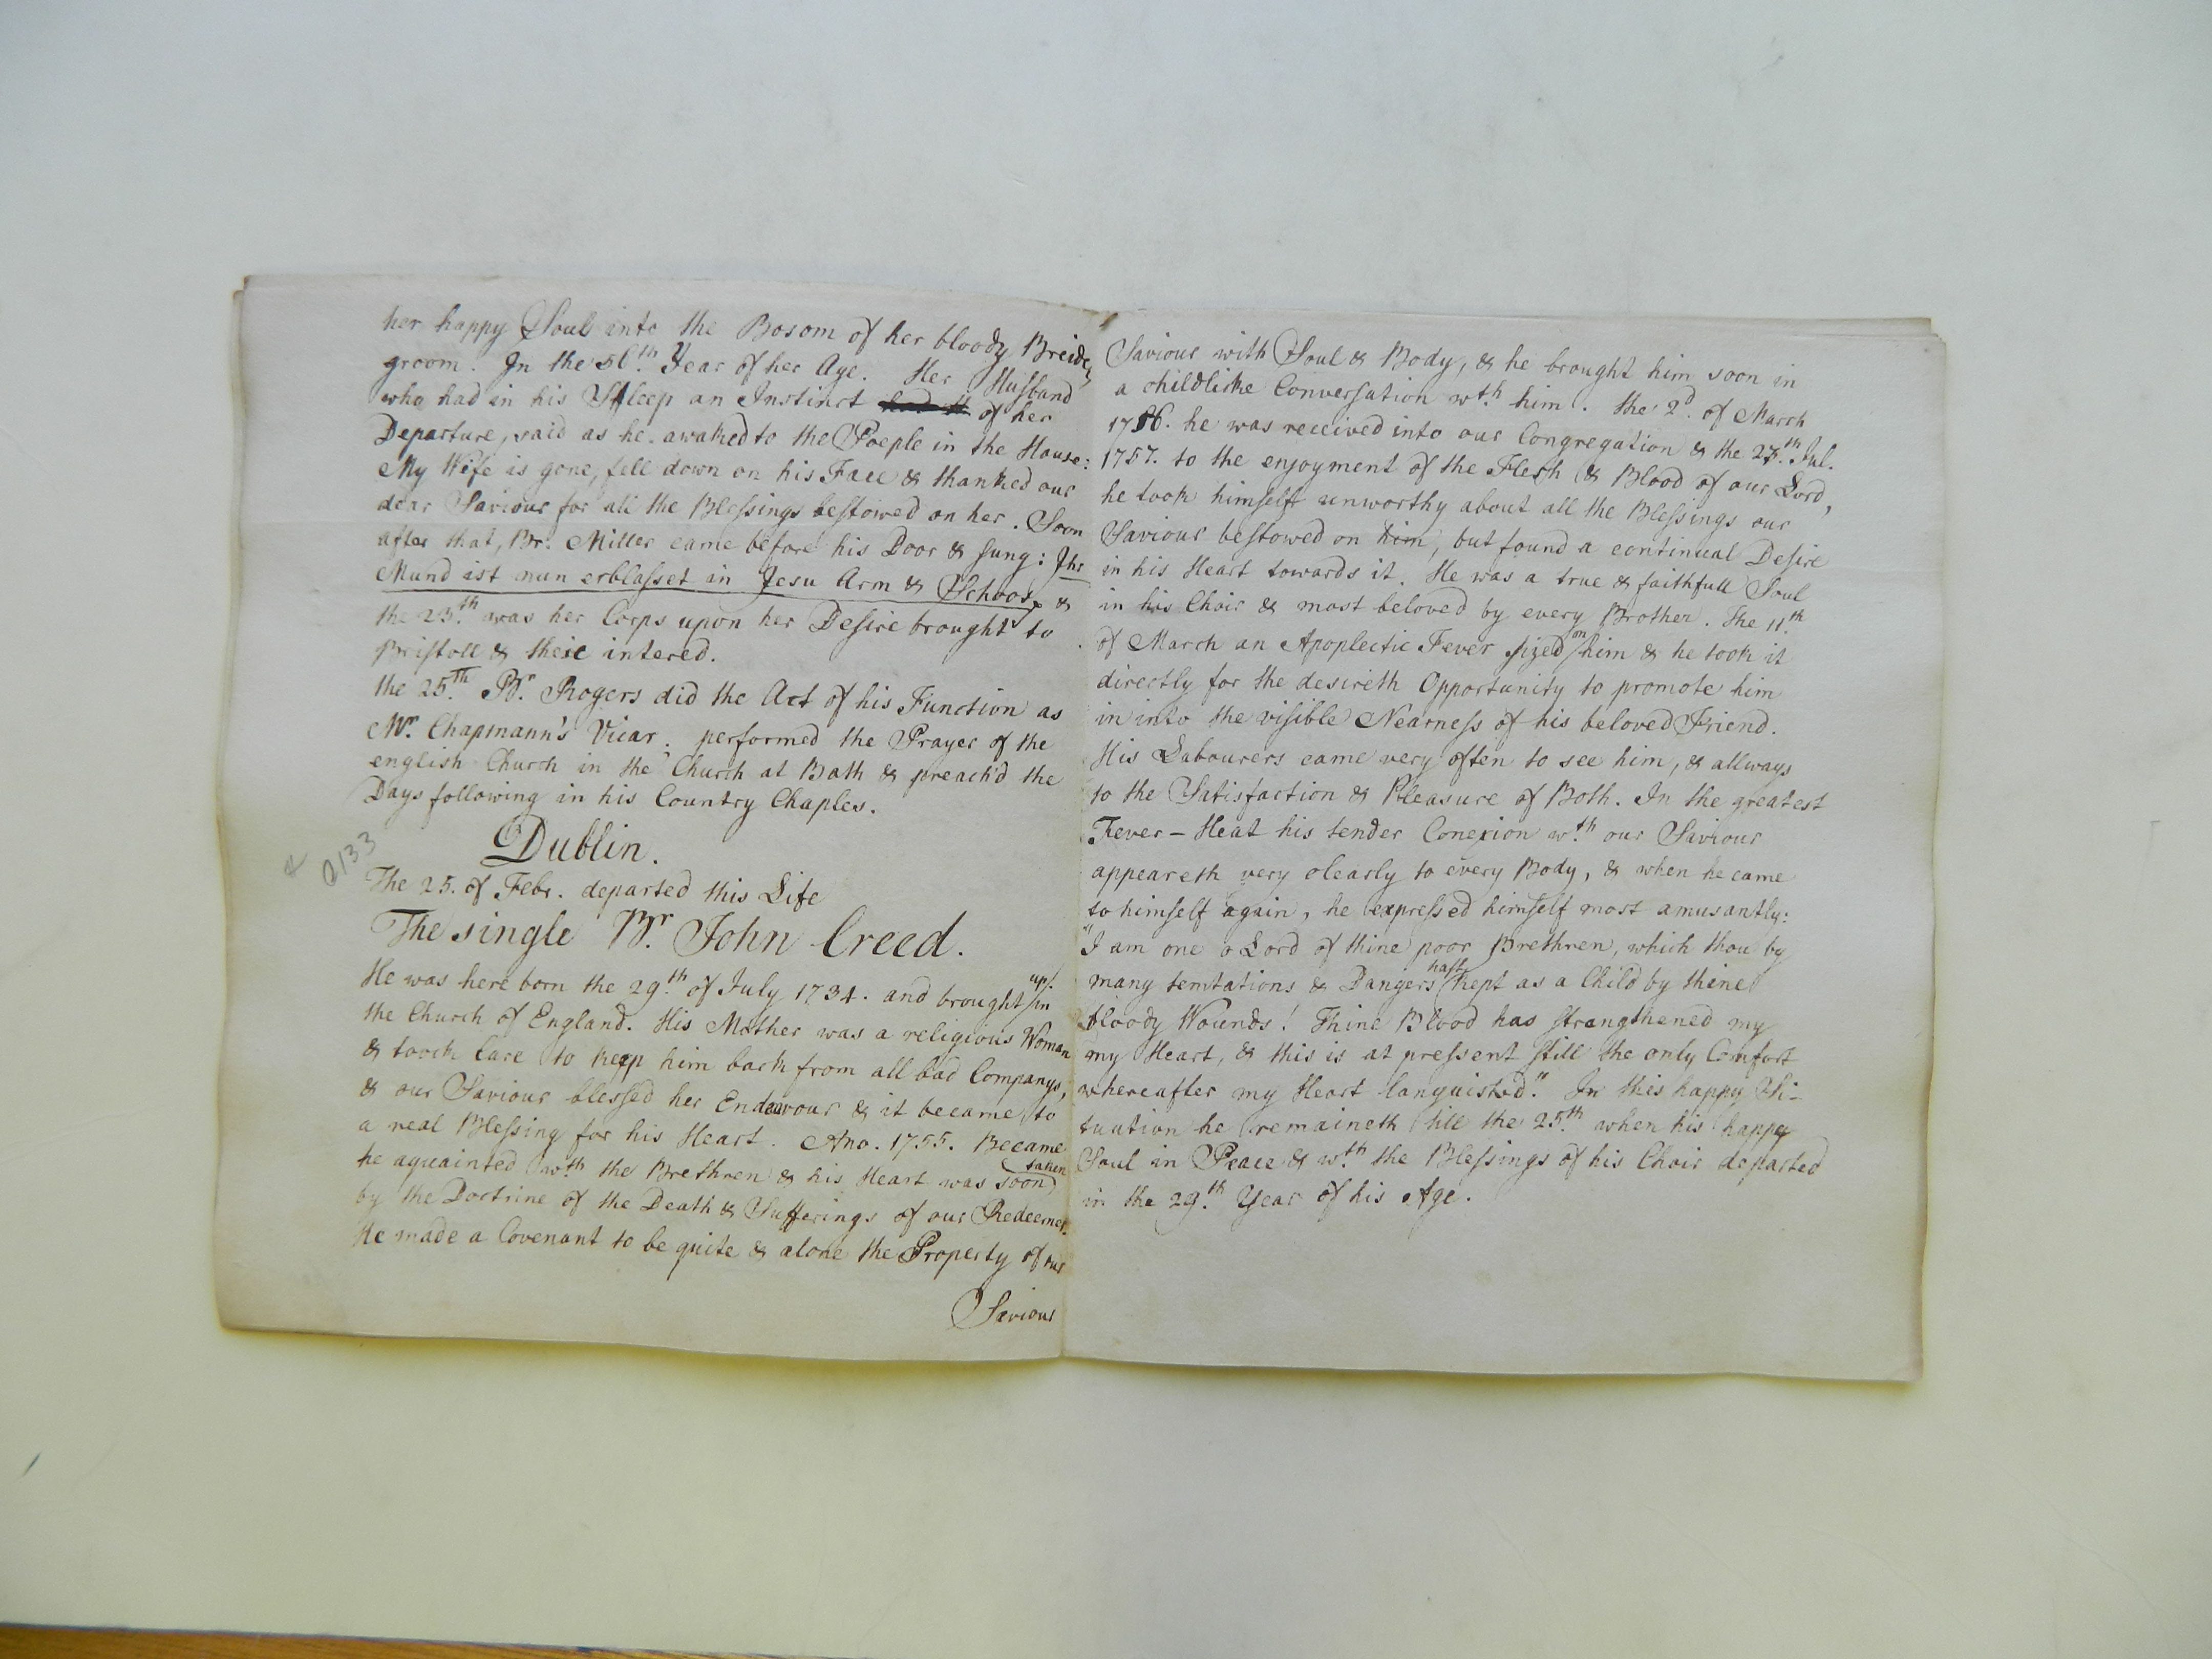 her happy Soul into the Bosom of her bloody Breide,
groom. In the 56th. Year of her Age. Her Husband
who had in his Sleep an Instinct of her
Departure, said as he awaked to the Poeple in the House:
My Wife is gone, fell down on his Face & thanked our
dear Saviour for all the Blessings bestowed on her. Soon
after that, Br. Miller came before his Door & sung: Ihr
Mund ist nun erblasset in Jesu Arm & Schoos, &
the 23th. was her Corps upon her Desire brought to
Bristoll & theire intered.
the 25.th Br. Rogers did the Act of his Function as
Mr. Chapmann's Vicar. performed the Prayer of the
english Church in the Church at Bath & preach'd the
Days following in his Country Chaples.
Dublin.
The 25. of Febr. departed this Life
The single Br. John Creed.
He was here born the 29.th of July 1734. and brought up in
the Church of England. His Mother was a religious Woman
& toock Care to keep him back from all bad Companys,
& our Saviour blessed her Endeavour & it became to
a real Blessing for his Heart. Ano. 1755. Became
he aquainted wth. the Brethren & his Heart was soon taken
by the Doctrine of the Death & Sufferings of our Redeemer.
He made a Covenant to be quite & alone the Property of our
Saviour
R133
Saviour with Soul & Body, & he brought him soon in
a childlike Conversation wth. him. the 2d. of March
1756. he was received into our Congregation & the 27.th Jul.
1757. to the enjoyment of the Flesh & Blood of our Lord,
he took himself unworthy about all the Blessings our
Saviour bestowed on him, but found a continual Desire
in his Heart towards it. He was a true & faithfull Soul
in his Choir & most beloved by every Brother. The 11th.
of March an Apoplectic Fever sized on him & he took it
directly for the desireth Opportunity to promote him
in into the visible Nearness of his beloved Friend.
His Labourers came very often to see him, & allways
to the Satisfaction & Pleasure of Both. In the greatest
Fever-Heat his tender Conexion wth. our Saviour
appeareth very clearly to every Body, & when he came
to himself again, he expressed himself most amusantly:
"I am one o Lord of thine poor Brethren, which thou by
many temtations & Dangers hast kept as a Child by thine
bloody Wounds! Thine Blood has strangthened my
my Heart, & this is at pressent still the only Comfort
whereafter my Heart languisted." In this happy Si-
tuution he remaineth till the 25.th when his happy
Soul in Peace & wth. the Blessings of his Choir departed
in the 29.th Year of his Age.